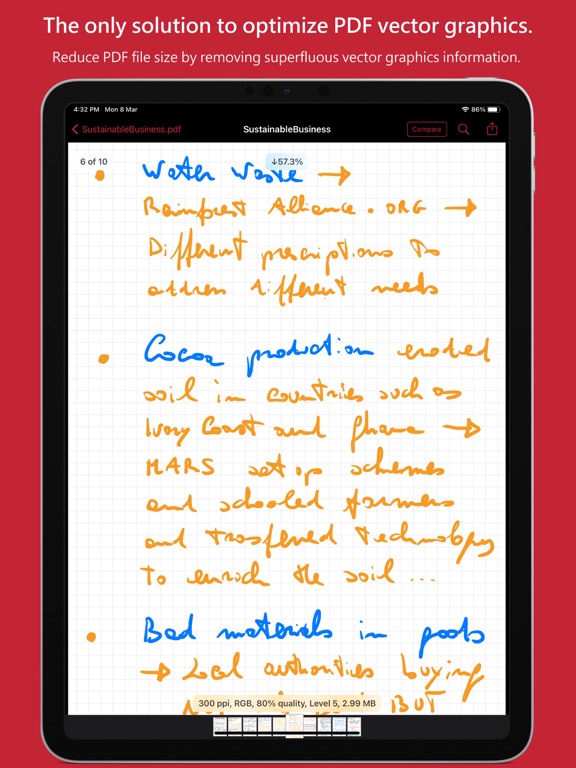 The only solution to optimize PDF vector graphics.
Reduce PDF file size by removing superfluous vector graphics information.
4:32 PM Mon 8 Mar
86%
SustainableBusiness.pdf
SustainableBusiness
Compare
6 of 10
↓57.3%
Water Waste →
Rainforest Alliance.ORG →
Different prescriptions to
address different needs
Cocoa production eroded
soil in countries such as
Ivory Coast and Ghana →
MARS set up schemes
and schooled farmers
and trasfered technology
to enrich the soil ...
Bad materials in pools
→ Local authorities buying
BUT
300 ppi, RGB, 80% quality, Level 5, 2.99 MB